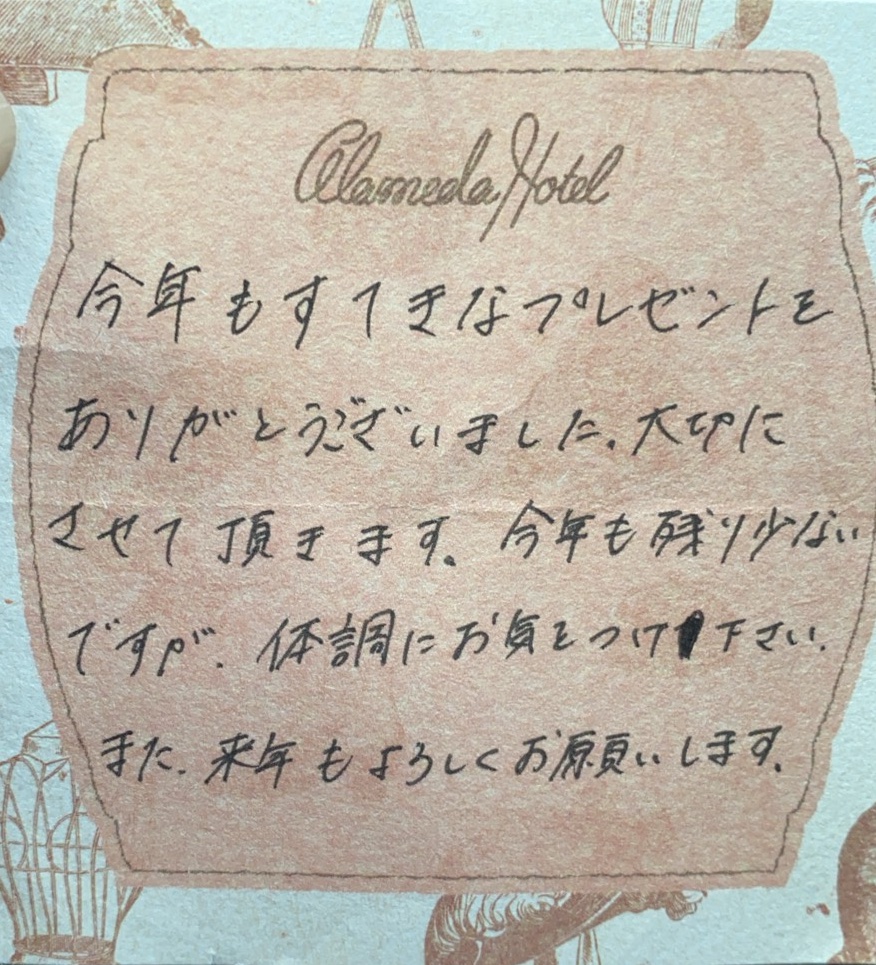 Alameda Hotel
今年もすてきなプレゼントを
ありがとうございました。大切に
させて頂きます。今年も残り少ない
ですが、体調にお気をつけ下さい。
また、来年もよろしくお願いします。